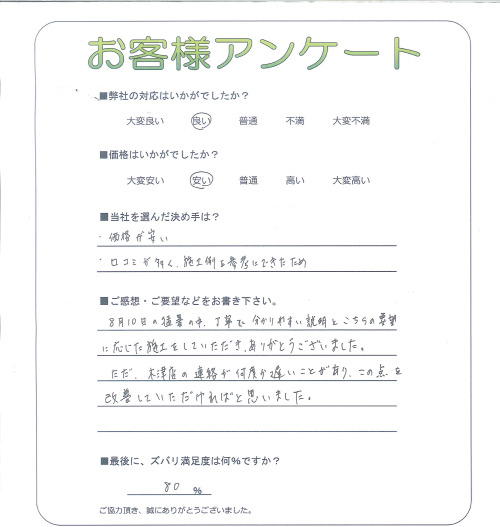 お客様アンケート
■弊社の対応はいかがでしたか？
大変良い 良い 普通 不満 大変不満
■価格はいかがでしたか？
大変安い 安い 普通 高い 大変高い
■当社を選んだ決め手は？
・価格が安い
・口コミが多く、施工例を参考にできたため
■ご感想・ご要望などをお書き下さい。
8月10日の猛暑の中、丁寧で分かりやすい説明とこちらの要望
に応じた施工をしていただき、ありがとうございました。
ただ、木津店の連絡が何度か遅いことがあり、この点を
改善していただければと思いました。
■最後に、ズバリ満足度は何％ですか？
80 ％
ご協力頂き、誠にありがとうございました。